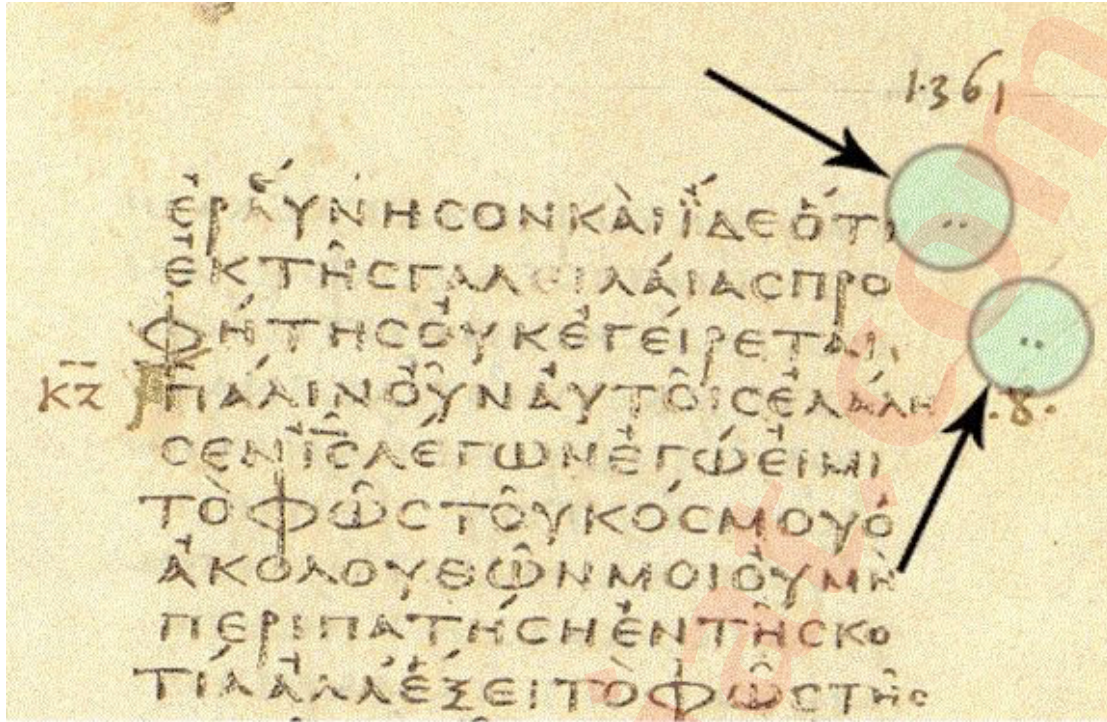 1361
ἐραύνηϲονκὰιΐδεὅτι
ἐκτῆϲγαλειλάιαϲπρο
φήτηϲὀυκἐγείρεται
κζ πάλινοὖναὐτοῖϲἐλάλη .8.
ϲενι̅ϲ̅λέγωνἐγώεἰμι
τὸφῶϲτοῦκόϲμουὁ
ἀκολουθῶνμοιὀυμὴ
περιπατήϲηἐντῆϲκο
τίᾳἀλλἁέξειτὸφῶϲτῆϲ
com